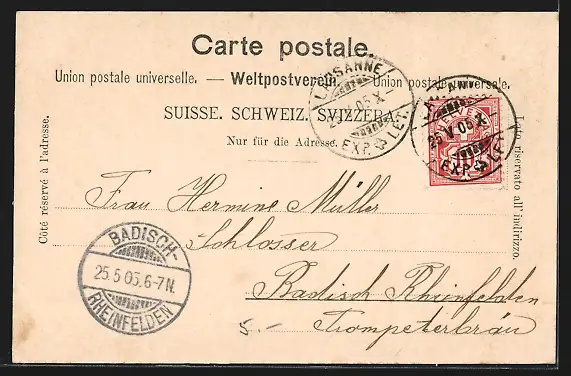 Carte postale.
Union postale universelle. — Weltpostverein. — Union postale universale.
SUISSE. SCHWEIZ. SVIZZERA.
Nur für die Adresse.
Côté réservé à l'adresse.
Lato riservato all'indirizzo.
LAUSANNE
25 V 05 X
EXP. LET.
25 V 05 X
EXP. LET.
HELVETIA
10
Frau Hermine Müller
Schlosser
Badisch Rheinfelden
Trompeterbräu
5.—
BADISCH-
25.5.05.6-7N.
RHEINFELDEN